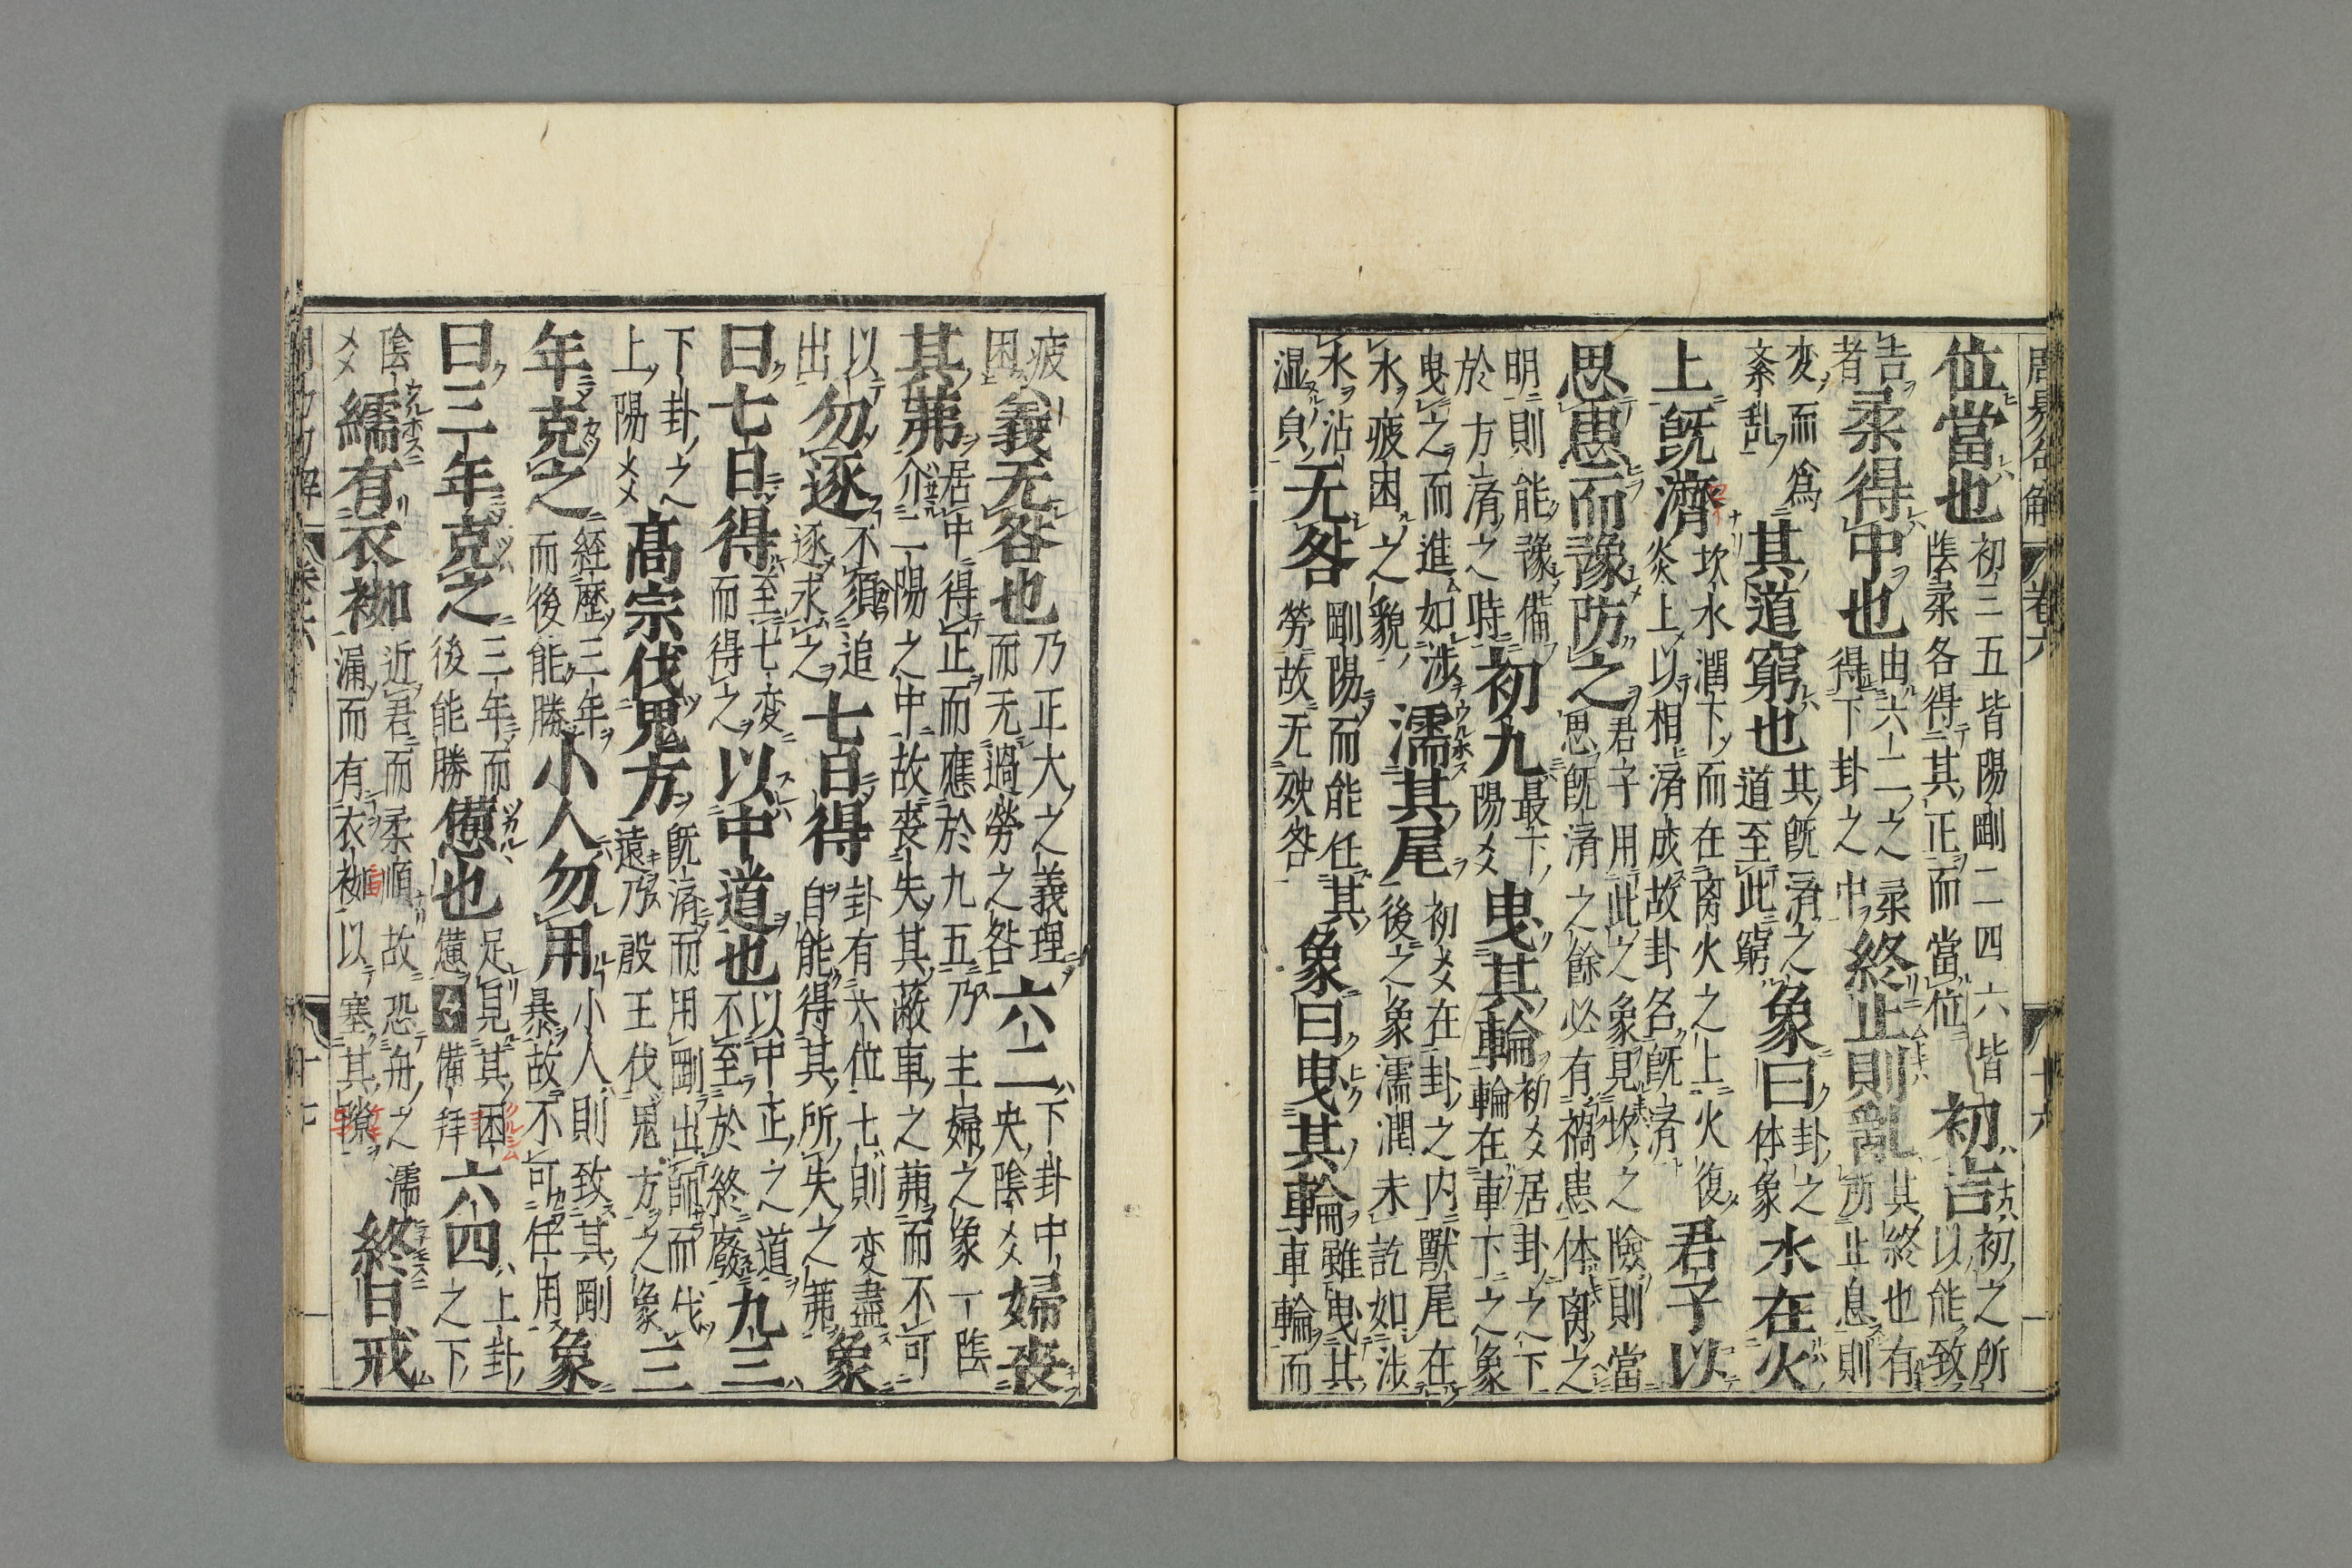 位當也初三五皆陽剛二四六皆陰柔各得其正而當位初吉初之所以能致
吉者柔得中也由六二之柔得下卦之中終止則亂其終也有所止息則
変而爲紊乱其道窮也其既済之道至此窮象曰卦之体象水在火
上既濟坎水潤下而在离火之上火復炎上以相済成故卦名既済君子以
思患而豫防之君子用此之象見坎之險則當思既済之餘必有禍患体离之
明則能豫備於方済之時初九最下陽爻曳其輪初爻居卦之下輪在車下之象
曳之而進如涉水疲困之貌濡其尾初爻在卦之内獸尾在後之象濡潤未訖如涉
水沾湿貞无咎剛陽而能任其勞故无殃咎象曰曳其輪雖曳其車輪而
疲困義无咎也乃正大之義理而无過勞之咎六二下卦中央陰爻婦喪
其茀居中得正而應於九五乃主婦之象一陰介二陽之中故喪失其蔽車之茀而不可
以出勿逐不須追逐求之七日得卦有六位七則変盡自能得其所失之茀象
曰七日得至七変而得之以中道也以中正之道不至於終廢九三
下卦之上陽爻高宗伐鬼方既済而用剛出師而伐遠乃殷王伐鬼方之象三
年克之經歷三年而後能勝小人勿用小人則致其剛暴故不可任用象
曰三年克之三年而後能勝憊也足見其困憊備拜六四上卦之下
陰爻繻有衣袽近君而柔順故恐舟之濡漏而有衣袽以塞其隙終日戒